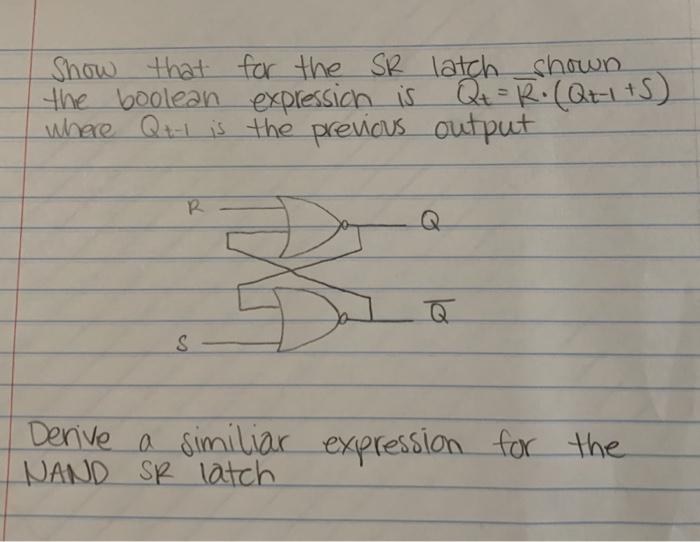 Show that for the SR latch shown
the boolean expression is Qt = R̅·(Qt-1+S)
where Qt-1 is the previous output
R
Q
Q̅
S
Derive a similiar expression for the
NAND SR latch